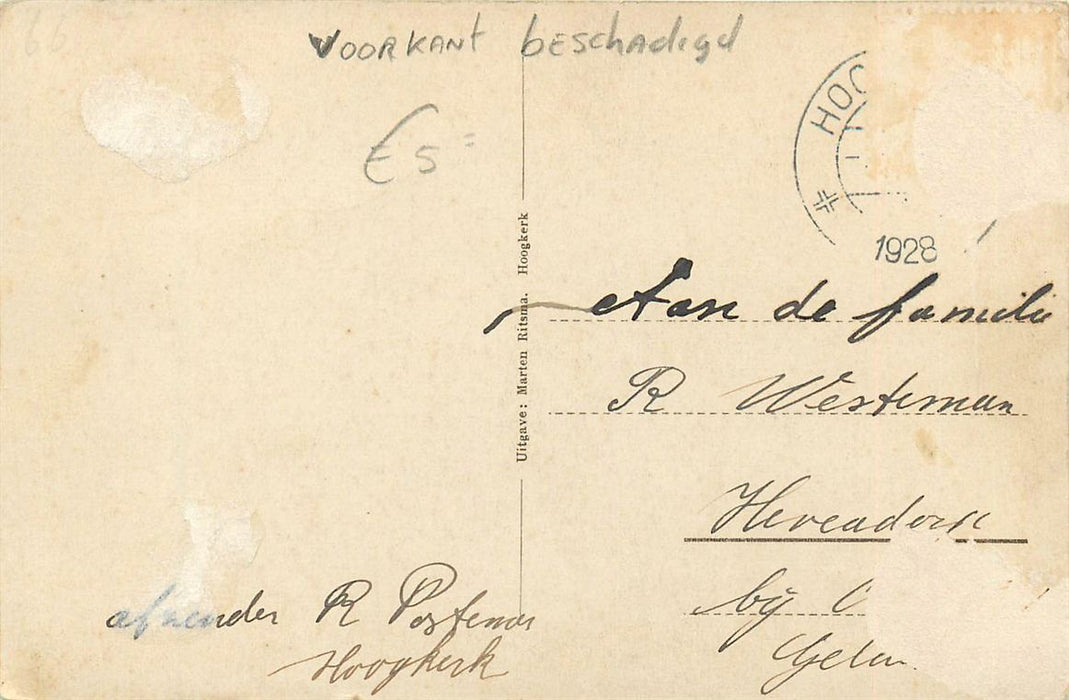 VOORKANT beschadigd
€ 5 =
HOO
1928
Uitgave: Marten Ritsma. Hoogkerk
Aan de familie
R Westeman
Heveadorp
bij
afzender R Postema
Hoogkerk